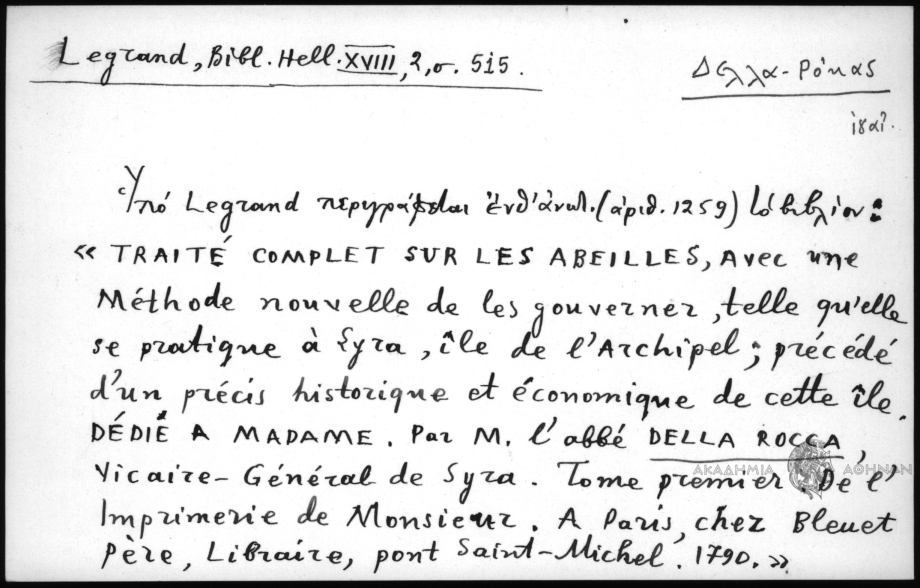 Legrand, Bibl. Hell. XVIII, 2, σ. 515.
Δελλα-Ρόκας
Ὑπό Legrand περιγράφεται ἐνθ' ἀνωτ. (ἀριθ. 1259) τό βιβλίον:
« TRAITÉ COMPLET SUR LES ABEILLES, Avec une
Méthode nouvelle de les gouverner, telle qu'elle
se pratique à Syra, île de l'Archipel; précédé
d'un précis historique et économique de cette île.
DÉDIÉ A MADAME. Par M. l'abbé DELLA ROCCA,
Vicaire-Général de Syra. Tome premier. De l'
ΑΚΑΔΗΜΙΑ ΑΘΗΝΩΝ
Imprimerie de Monsieur. A Paris, chez Bleuet
Père, Libraire, pont Saint-Michel. 1790. »